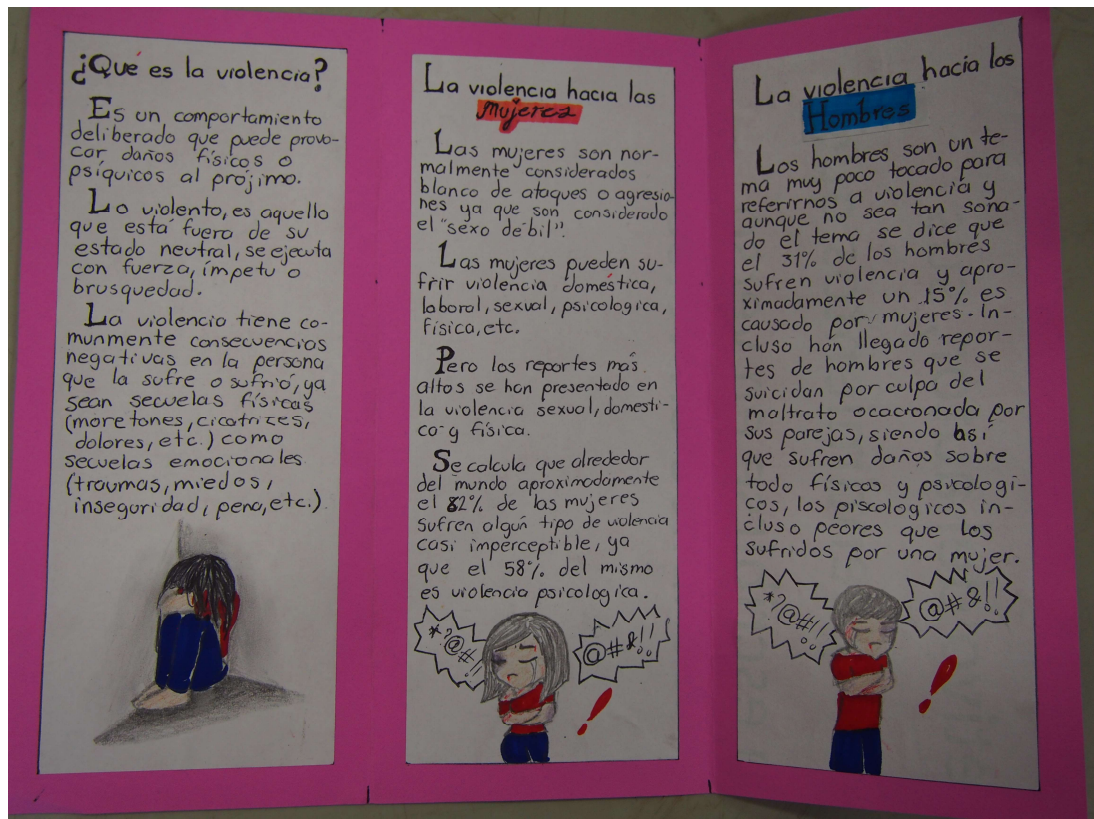 ¿Qué es la violencia?
Es un comportamiento
deliberado que puede provo-
car daños físicos o
psíquicos al prójimo.
Lo violento, es aquello
que está fuera de su
estado neutral, se ejecuta
con fuerza, ímpetu o
brusquedad.
La violencia tiene co-
munmente consecuencias
negativas en la persona
que la sufre o sufrió, ya
sean secuelas físicas
(moretones, cicatrizes,
dolores, etc.) como
secuelas emocionales
(traumas, miedos,
inseguridad, pena, etc.)
La violencia hacia las
Mujeres
Las mujeres son nor-
malmente considerados
blanco de ataques o agresio-
nes ya que son considerado
el "sexo débil".
Las mujeres pueden su-
frir violencia doméstica,
laboral, sexual, psicologica,
física, etc.
Pero los reportes más
altos se han presentado en
la violencia sexual, domesti-
ca y física.
Se calcula que alrededor
del mundo aproximadamente
el 82% de las mujeres
sufren algún tipo de violencia
casi imperceptible, ya
que el 58% del mismo
es violencia psicologica.
*?@#!!
@#&!!
La violencia hacia los
Hombres
Los hombres son un te-
ma muy poco tocado para
referirnos a violencia y
aunque no sea tan sona-
do el tema se dice que
el 31% de los hombres
sufren violencia y apro-
ximadamente un 15% es
causado por mujeres. In-
cluso han llegado repor-
tes de hombres que se
suicidan por culpa del
maltrato ocacionada por
sus parejas, siendo así
que sufren daños sobre
todo físicos y psicologi-
cos, los piscologicos in-
cluso peores que los
sufridos por una mujer.
*?@#!!
@#&!!